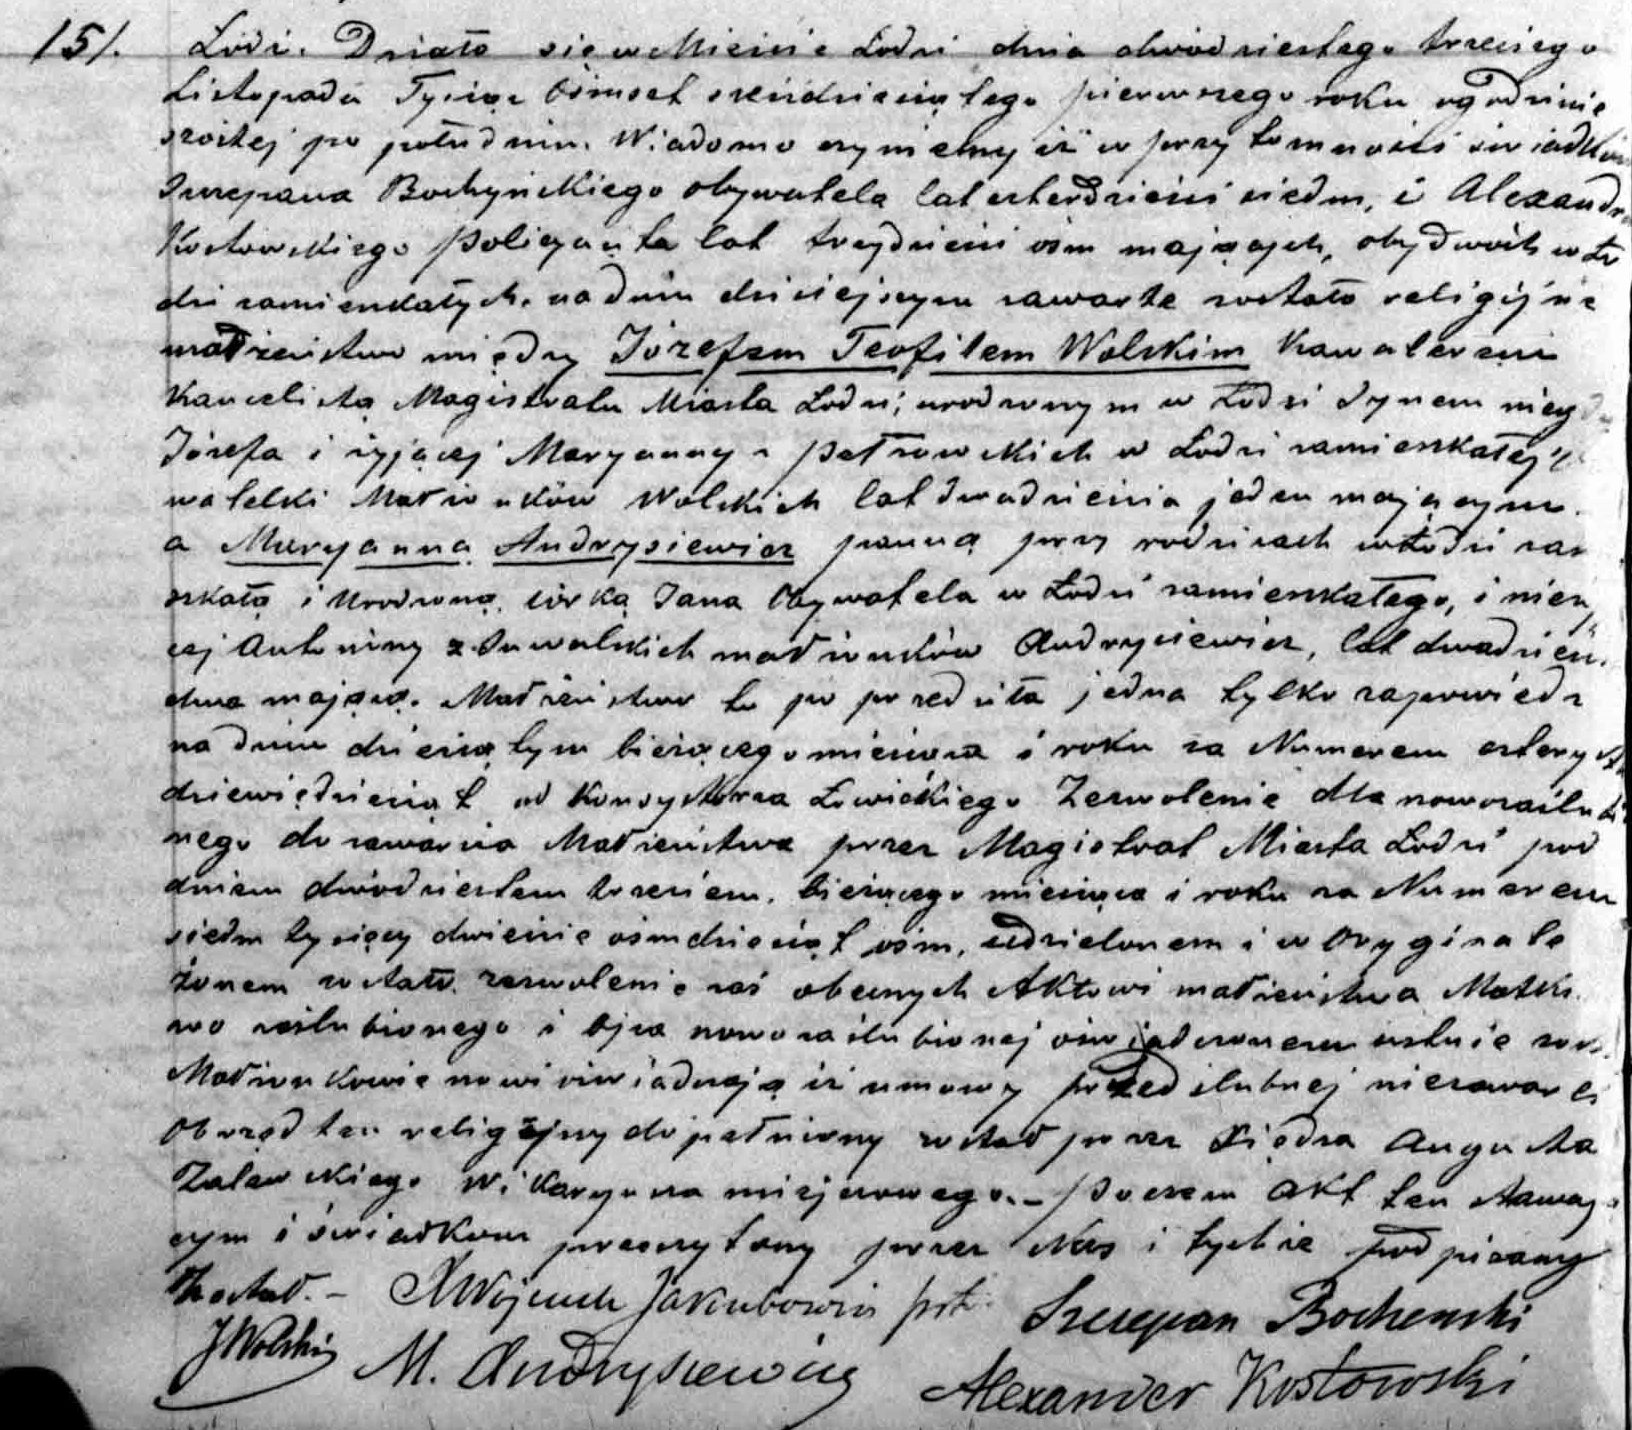 151. Łódź. Działo się w Mieście Łodzi dnia dwódziestego trzeciego
Listopada Tysiąc Ośmset sześćdziesiątego pierwszego roku o godzinie
szóstej po południu. Wiadomo czyniemy iż w przytomności świadków
Szczepana Bochyńskiego obywatela lat czterdzieści siedm, i Alexandra
Kostowskiego Policyanta lat trzydzieści ośm mających, obydwóch w Ło
dzi zamieszkałych, na dniu dzisiejszym zawarte zostało religijne
małżeństwo między Józefem Teofilem Wolskim Kawalerem
Kancelistą Magistratu Miasta Łodzi, urodzonym w Łodzi Synem niegdy
Józefa i żyjącej Maryanny z Petrowskich w Łodzi zamieszkałej
watelki Małżonków Wolskich lat dwadzieścia jeden mającym.
a Maryanną Andrysiewicz panną przy rodzicach w Łodzi zam
szkałą i Urodzoną, córką Jana Obywatela w Łodzi zamieszkałego, i nieży
cej Antoniny z Suwalskich małżonków Andrysiewicz, lat dwadzieści
dwa mającą. Małżeństwo to po przedziła jedna tylko zapowiedź
na dniu dziesiątym bieżącego miesiąca i roku za Numerem cztery
dziewiędziesiąt od Konsystorza Łowickiego Zezwolenie dla nowozaślubio
nego do zawarcia Małżeństwa przez Magistrat Miasta Łodzi pod
dniem dwódziestem trzeciem, bieżącego miesiąca i roku za Numerem
siedm tysięcy dwieście ośmdziesiąt ośm, udzielonem i w Oryginale
żonem zostało. zezwolenie zaś obecnych Aktowi małżeństwa Matki
wo zaślubionego i Ojca nowozaślubionej oświadczonem ustnie zost.
Małżonkowie nowi oświadczają iż umowy przedślubnej niezawarli
Obrząd ten religijny dopełniony został przez Xiędza Augusta
Zalewskiego Wikaryusza miejscowego. – Poczem Akt ten stawają
cym i świadkom przeczytany przez Nas i tychże podpisany
Został. – X Wojciech Jakubowicz prob. Szczepan Bochenski
J Wolski M. Andrysiewicz Alexander Kostowski